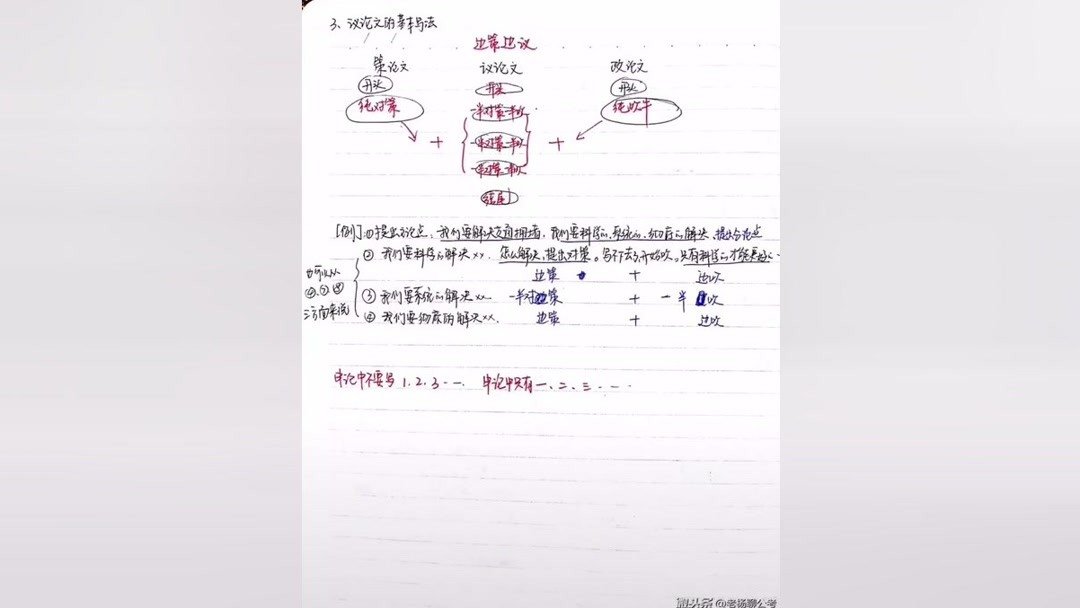 3、议论文的基本写法
边策边议
策论文 议论文 政论文
开头 开头 开头
纯对策 一半对策一半吹 纯吹牛
+ 一半对策一半吹 +
一半对策一半吹
结尾
[例]:①提出总论点:我们要解决交通拥堵,我们要科学的、系统的、彻底的解决、提出分论点
② 我们要科学的解决××. 怎么解决,提出对策。写不下去了,开始吹。只有科学的才能更好
边策 + 边吹
也可以从
②、③、④
三方面来说
③ 我们要系统的解决××. 一半对策 + 一半吹
④ 我们要彻底的解决××. 边策 + 边吹
申论中不要写1、2、3…… 申论中只有一、二、三……
微头条 @老杨聊公考